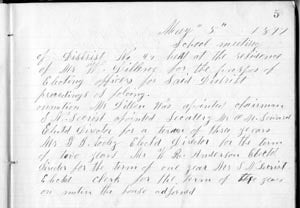 5
May 5" 1891
School meeting
of District No. 92 held at the residence
of Mr W. Dillon for the purpose of
Electing officers for said District
proceedings as following.
motion Mr Dillon was apointed chairman
S. W. Secrist apointed Secretary Mr
Elected Director for a term of three years
Mrs Elected Director for the term
of two years Mr Anderson Elected
Director for the term of one year Mr S W Secrist
Elected Clerk for the Term of years
on motion the house adjorned